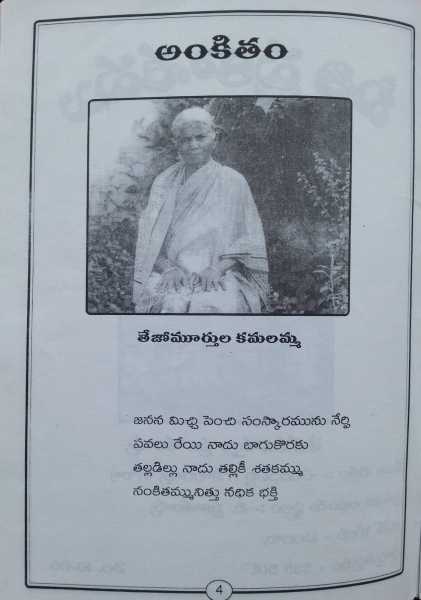 అంకితం
తేజోమూర్తుల కమలమ్మ
జనన మిచ్చి పెంచి సంస్కారమును నేర్పి
పవలు రేయి నాదు బాగుకొరకు
తల్లడిల్లు నాదు తల్లికీ శతకమ్ము
నంకితమ్మునిత్తు నధిక భక్తి
4